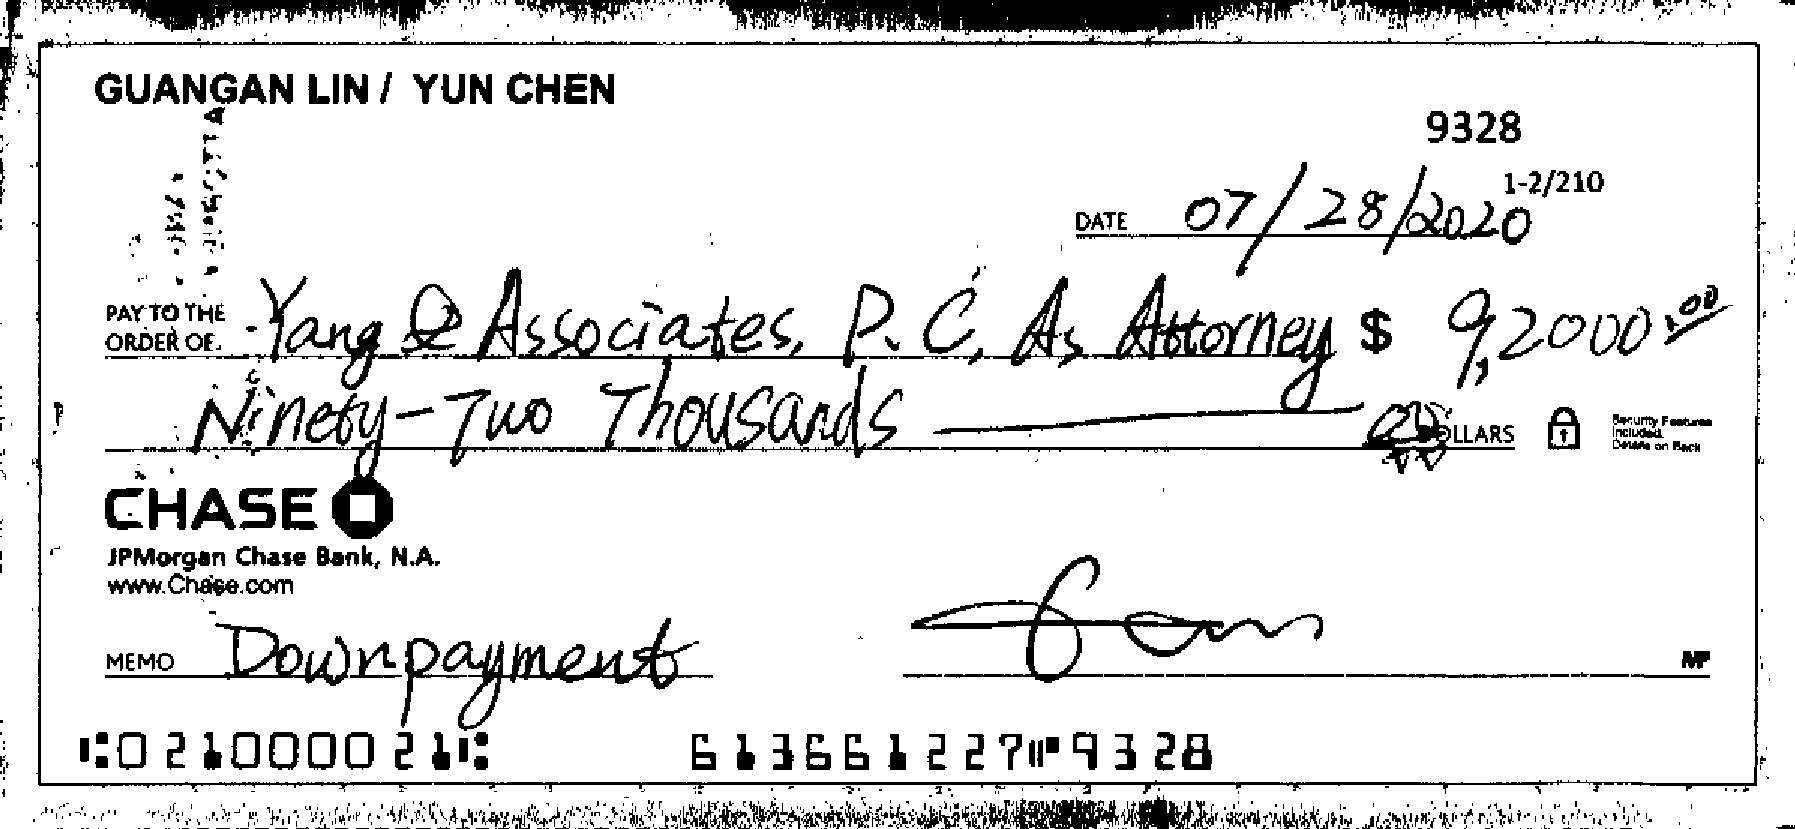 GUANGAN LIN / YUN CHEN
9328
1-2/210
DATE 07/28/2020
PAY TO THE
ORDER OF. Yang & Associates, P.C, As Attorney $ 9,2000.00
Ninety-Two Thousands DOLLARS
Security Features
Included.
Details on Back
CHASE
JPMorgan Chase Bank, N.A.
www.Chase.com
MEMO Downpayment
MP
⑆021000021⑆ 613661227⑈9328